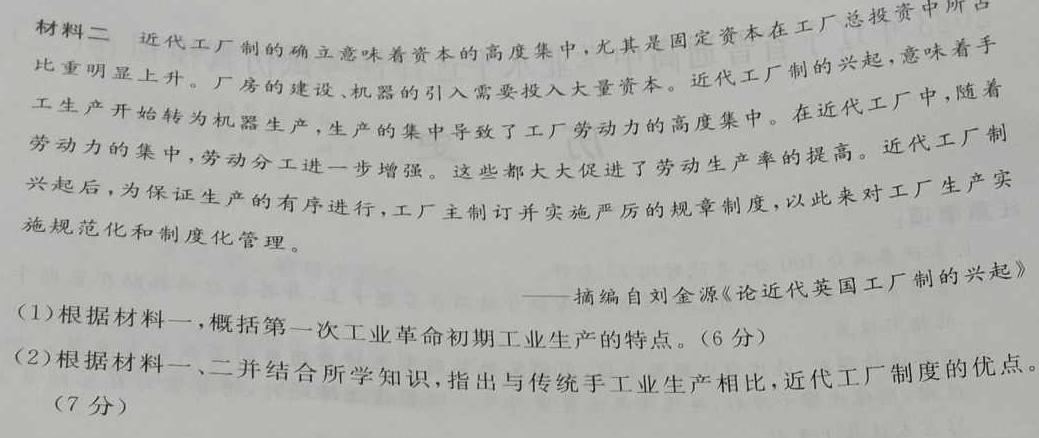 材料二 近代工厂制的确立意味着资本的高度集中,尤其是固定资本在工厂总投资中所占
比重明显上升。厂房的建设、机器的引入需要投入大量资本。近代工厂制的兴起,意味着手
工生产开始转为机器生产,生产的集中导致了工厂劳动力的高度集中。在近代工厂中,随着
劳动力的集中,劳动分工进一步增强。这些都大大促进了劳动生产率的提高。近代工厂制
兴起后,为保证生产的有序进行,工厂主制订并实施严厉的规章制度,以此来对工厂生产实
施规范化和制度化管理。
——摘编自刘金源《论近代英国工厂制的兴起》
(1)根据材料一,概括第一次工业革命初期工业生产的特点。(6分)
(2)根据材料一、二并结合所学知识,指出与传统手工业生产相比,近代工厂制度的优点。
(7分)